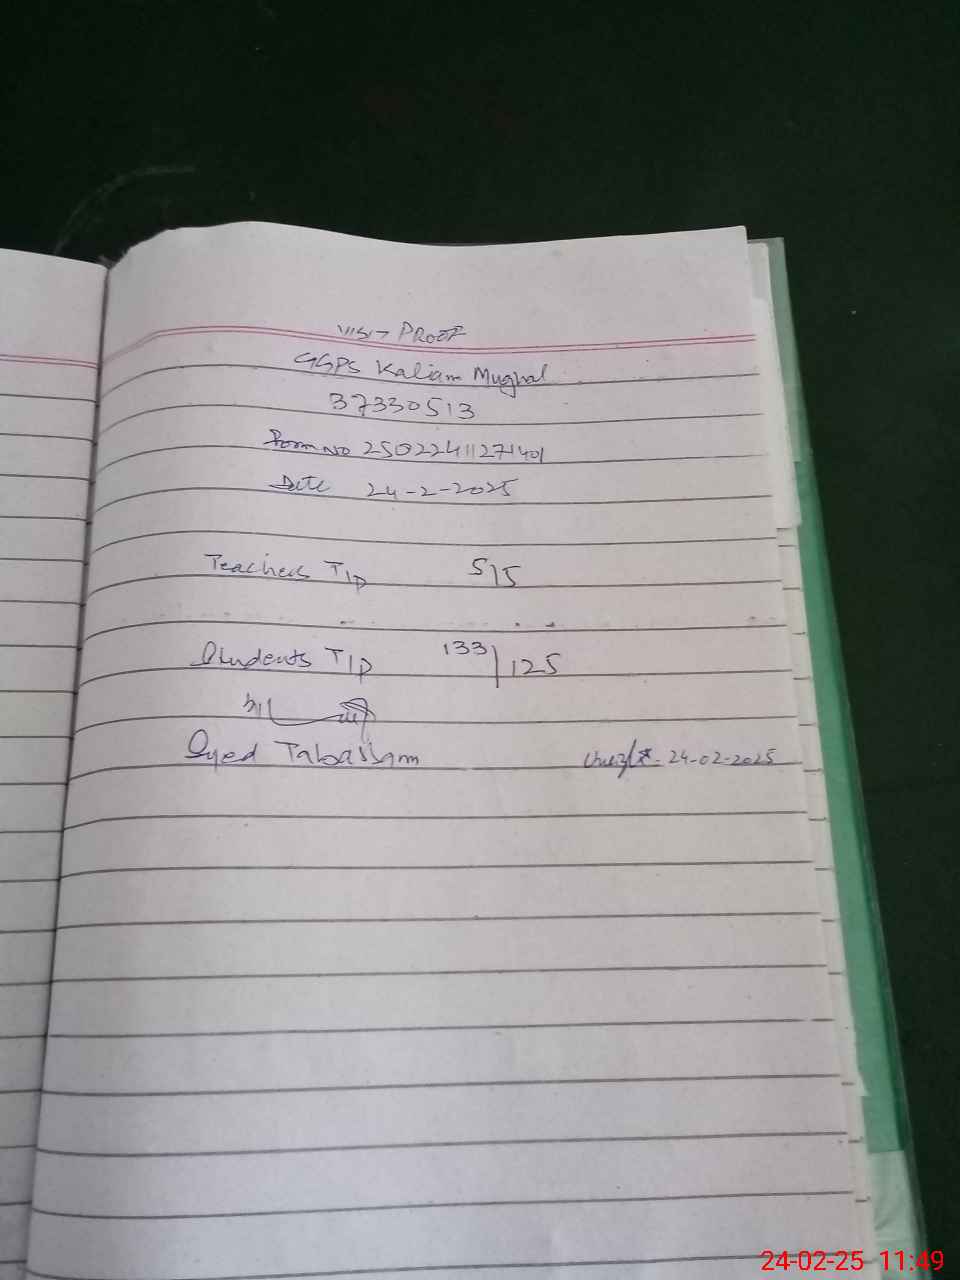 VISIT PROOF
GGPS Kaliam Mughal
37330513
Form No 25022411271401
Date 24-2-2025
Teachers T/P 5/5
Students T/P 133/125
Syed Tabassam
24-02-2025
24-02-25 11:49